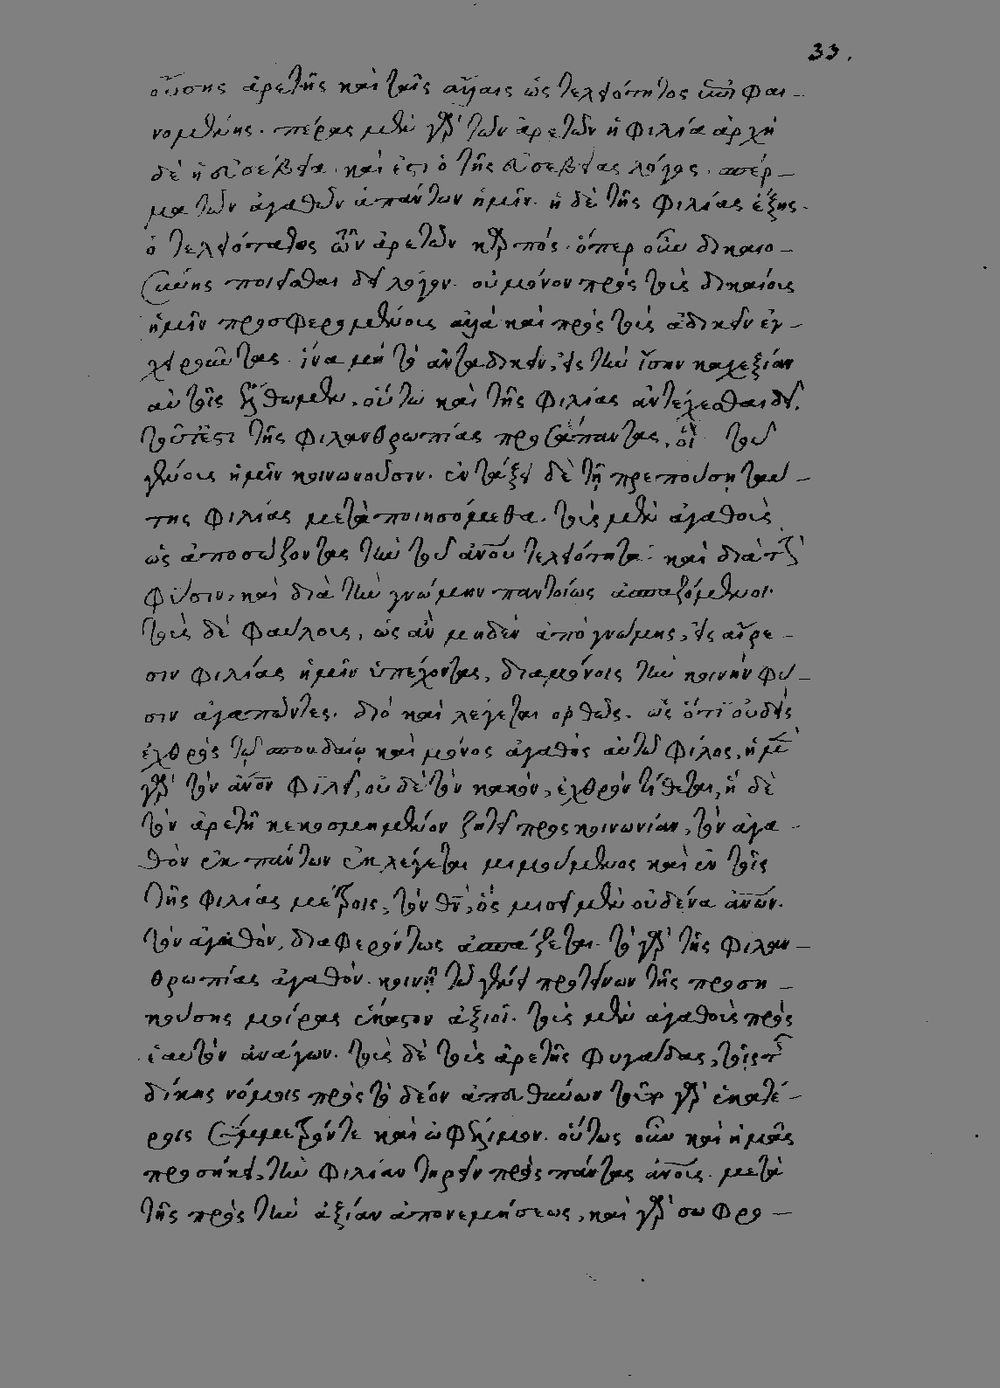 33.
οὔσης ἀρετῆς καὶ ταῖς ἄλλαις ὡς τελειότητος ἐπιφαι-
νομένης. πέρας μὲν γὰρ τῶν ἀρετῶν ἡ φιλία ἀρχὴ
δὲ ἡ εὐσέβεια. καὶ ἔστι ὁ τῆς εὐσεβείας λόγος. σπέρ-
μα τῶν ἀγαθῶν ἁπάντων ἡμῖν. ἡ δὲ τῆς φιλίας ἕξις.
ὁ τελειότατος τῶν ἀρετῶν καρπός. ὅπερ οὖν δικαιο-
σύνης ποιεῖσθαι δεῖ λόγον. οὐ μόνον πρὸς τοὺς δικαίοις
ἡμῖν προσφερομένοις ἀλλὰ καὶ πρὸς τοὺς ἀδικεῖν ἐγ-
χειροῦντας. ἵνα μὴ τὸ ἀνταδικεῖν, εἰς τὴν ἴσην καχεξίαν
αὐτοῖς ἔλθωμεν, οὕτω καὶ τῆς φιλίας ἀντέχεσθαι δεῖ,
τοῦτέστι τῆς φιλανθρωπίας προς ἅπαντας, οἳ τοῦ
γένους ἡμῖν κοινωνοῦσιν. ἐν τάξει δὲ τῇ πρεπούσῃ ταύ-
της φιλίας μεταποιησόμεθα. τοὺς μὲν ἀγαθοὺς
ὡς ἀποσώζοντας τὴν τοῦ ἀνου τελειότητα. καὶ διὰ τὴν
φύσιν, καὶ διὰ τὴν γνώμην παντοίως ἀσπαζόμενοι.
τοὺς δὲ φαύλους, ὡς ἂν μηδὲν ἀπὸ γνώμης, εἰς αἵρε-
σιν φιλίας ἡμῖν ὑπέχοντας, διαμόνοις τὴν κοινὴν φύ-
σιν ἀγαπῶντες. διὸ καὶ λέγεται ὀρθῶς. ὡς ὅτι οὐδεὶς
ἐχθρὸς τῷ σπουδαίῳ καὶ μόνος ἀγαθὸς αὐτῷ φίλος, ἡ μὲν
γὰρ τὸν ἄνον φιλεῖ, οὐδὲ τὸν κακὸν, ἐχθρὸν τίθεται, ἡ δὲ
τὸν ἀρετῇ κεκοσμημένον ζητεῖ πρὸς κοινωνίαν, τὸν ἀγα-
θὸν ἐκ πάντων ἐκλέγεται μιμούμενος καὶ ἐν τοῖς
τῆς φιλίας μέτροις, τὸν θν, ὃς μισεῖ μὲν οὐδένα ἀνων.
τὸν ἀγαθὸν, διαφερόντως ἀσπάζεται. τὸ γὰρ τῆς φιλαν-
θρωπίας ἀγαθὸν. κοινῇ τῷ γένει προτείνων τῆς προση-
κούσης μοίρας ἕκαστον ἀξιοῖ. τοὺς μὲν ἀγαθοὺς πρὸς
ἑαυτὸν ἀνάγων. τοὺς δὲ τοὺς ἀρετῆς φυγάδας, τοῖς τῆς
δίκης νόμοις πρὸς τὸ δέον ἀπευθύνων τοῦτο γὰρ ἑκατέ-
ροις σύμμετρόντε καὶ ὠφέλιμον. οὕτως οὖν καὶ ἡμᾶς
προσήκει, τὴν φιλίαν τηρεῖν πρὸς πάντας ἀνους. μετὰ
τῆς πρὸς τὴν ἀξίαν ἀπονεμήσεως, καὶ γὰρ σωφρο-